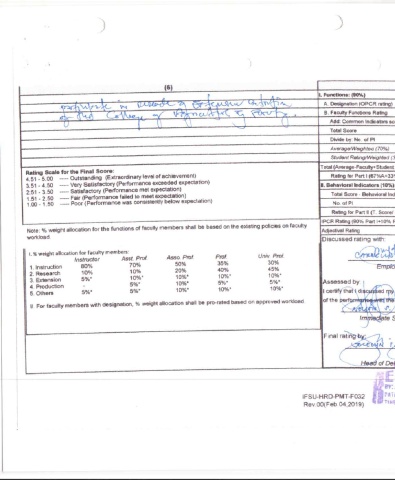 (5)
of the College of
Rating Scale for the Final Score:
4.51 - 5.00 ---- Outstanding (Extraordinary level of achievement)
3.51 - 4.50 ---- Very Satisfactory (Performance exceeded expectation)
2.51 - 3.50 ---- Satisfactory (Performance met expectation)
1.51 - 2.50 ---- Fair (Performance failed to meet expectation)
1.00 - 1.50 ---- Poor (Performance was consistently below expectation)
Note: % weight allocation for the functions of faculty members shall be based on the existing policies on faculty
workload
I. % weight allocation for faculty members:
Instructor Asst. Prof Asso. Prof Prof Univ. Prof
1. Instruction 80% 70% 50% 35% 30%
2. Research 10% 10% 20% 40% 45%
3. Extension 5%* 10%* 10%* 10%* 10%*
4. Production 5%* 10%* 5%* 5%*
5. Others 5%* 5%* 10%* 10%* 10%*
II. For faculty members with designation, % weight allocation shall be pro-rated based on approved workload
I. Functions: (90%)
A. Designation (OPCR rating)
B. Faculty Functions Rating
Add: Common Indicators
Total Score
Divide by: No. of PI
Average/Weighted (70%)
Student Rating/Weighted
Total (Average-Faculty+Student
Rating for Part I
II. Behavioral Indicators (10%)
Total Score - Behavioral
No. of PI
Rating for Part II (T. Score/
IPCR Rating (90% Part I+10%
Adjectival Rating
Discussed rating with:
Assessed by:
I certify that I discussed my
of the performance with the
Immediate S
Final rating by:
Head of
IFSU-HRO-PMT-F032
Rev.00(Feb.04,2019)